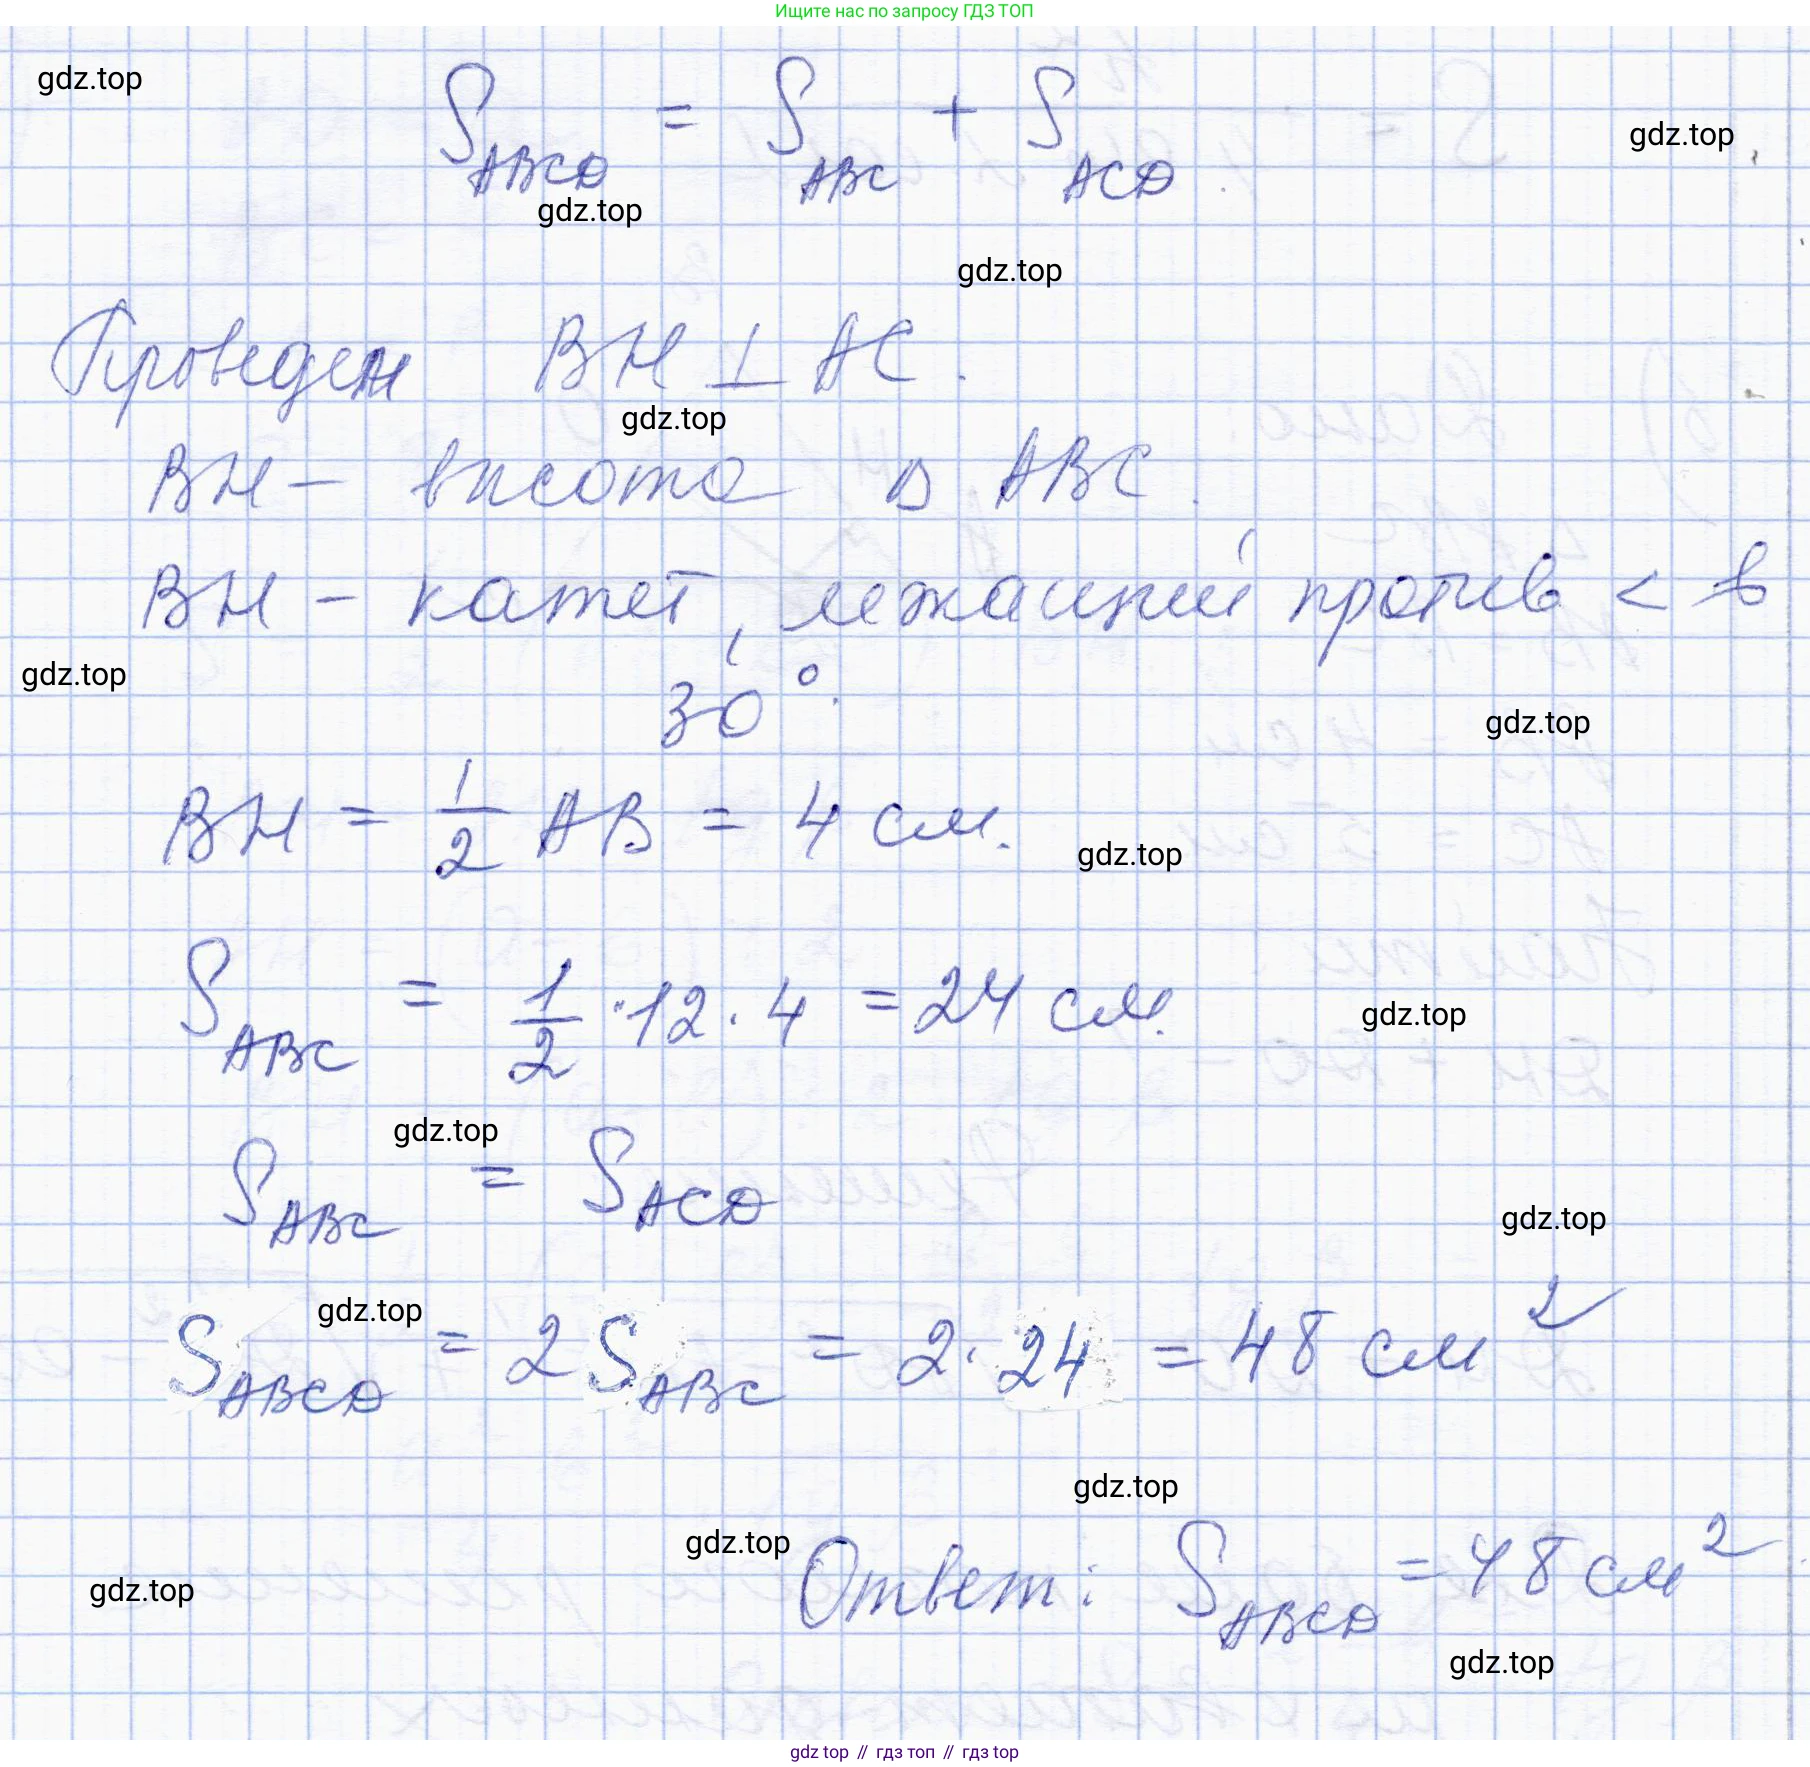 Ищите нас по запросу ГДЗ ТОП
gdz.top
S_ABCD = S_ABC + S_ACD.
gdz.top
gdz.top
gdz.top
Проведем BH ⊥ AC.
gdz.top
BH – высота △ ABC.
BH – катет, лежащий против < в
gdz.top
30°.
gdz.top
BH = 1/2 AB = 4 см.
gdz.top
S_ABC = 1/2 · 12 · 4 = 24 см.
gdz.top
gdz.top
S_ABC = S_ACD
gdz.top
gdz.top
S_ABCD = 2 S_ABC = 2 · 24 = 48 см²
gdz.top
gdz.top
Ответ: S_ABCD = 48 см².
gdz.top
gdz.top
gdz top // гдз топ // гдз top